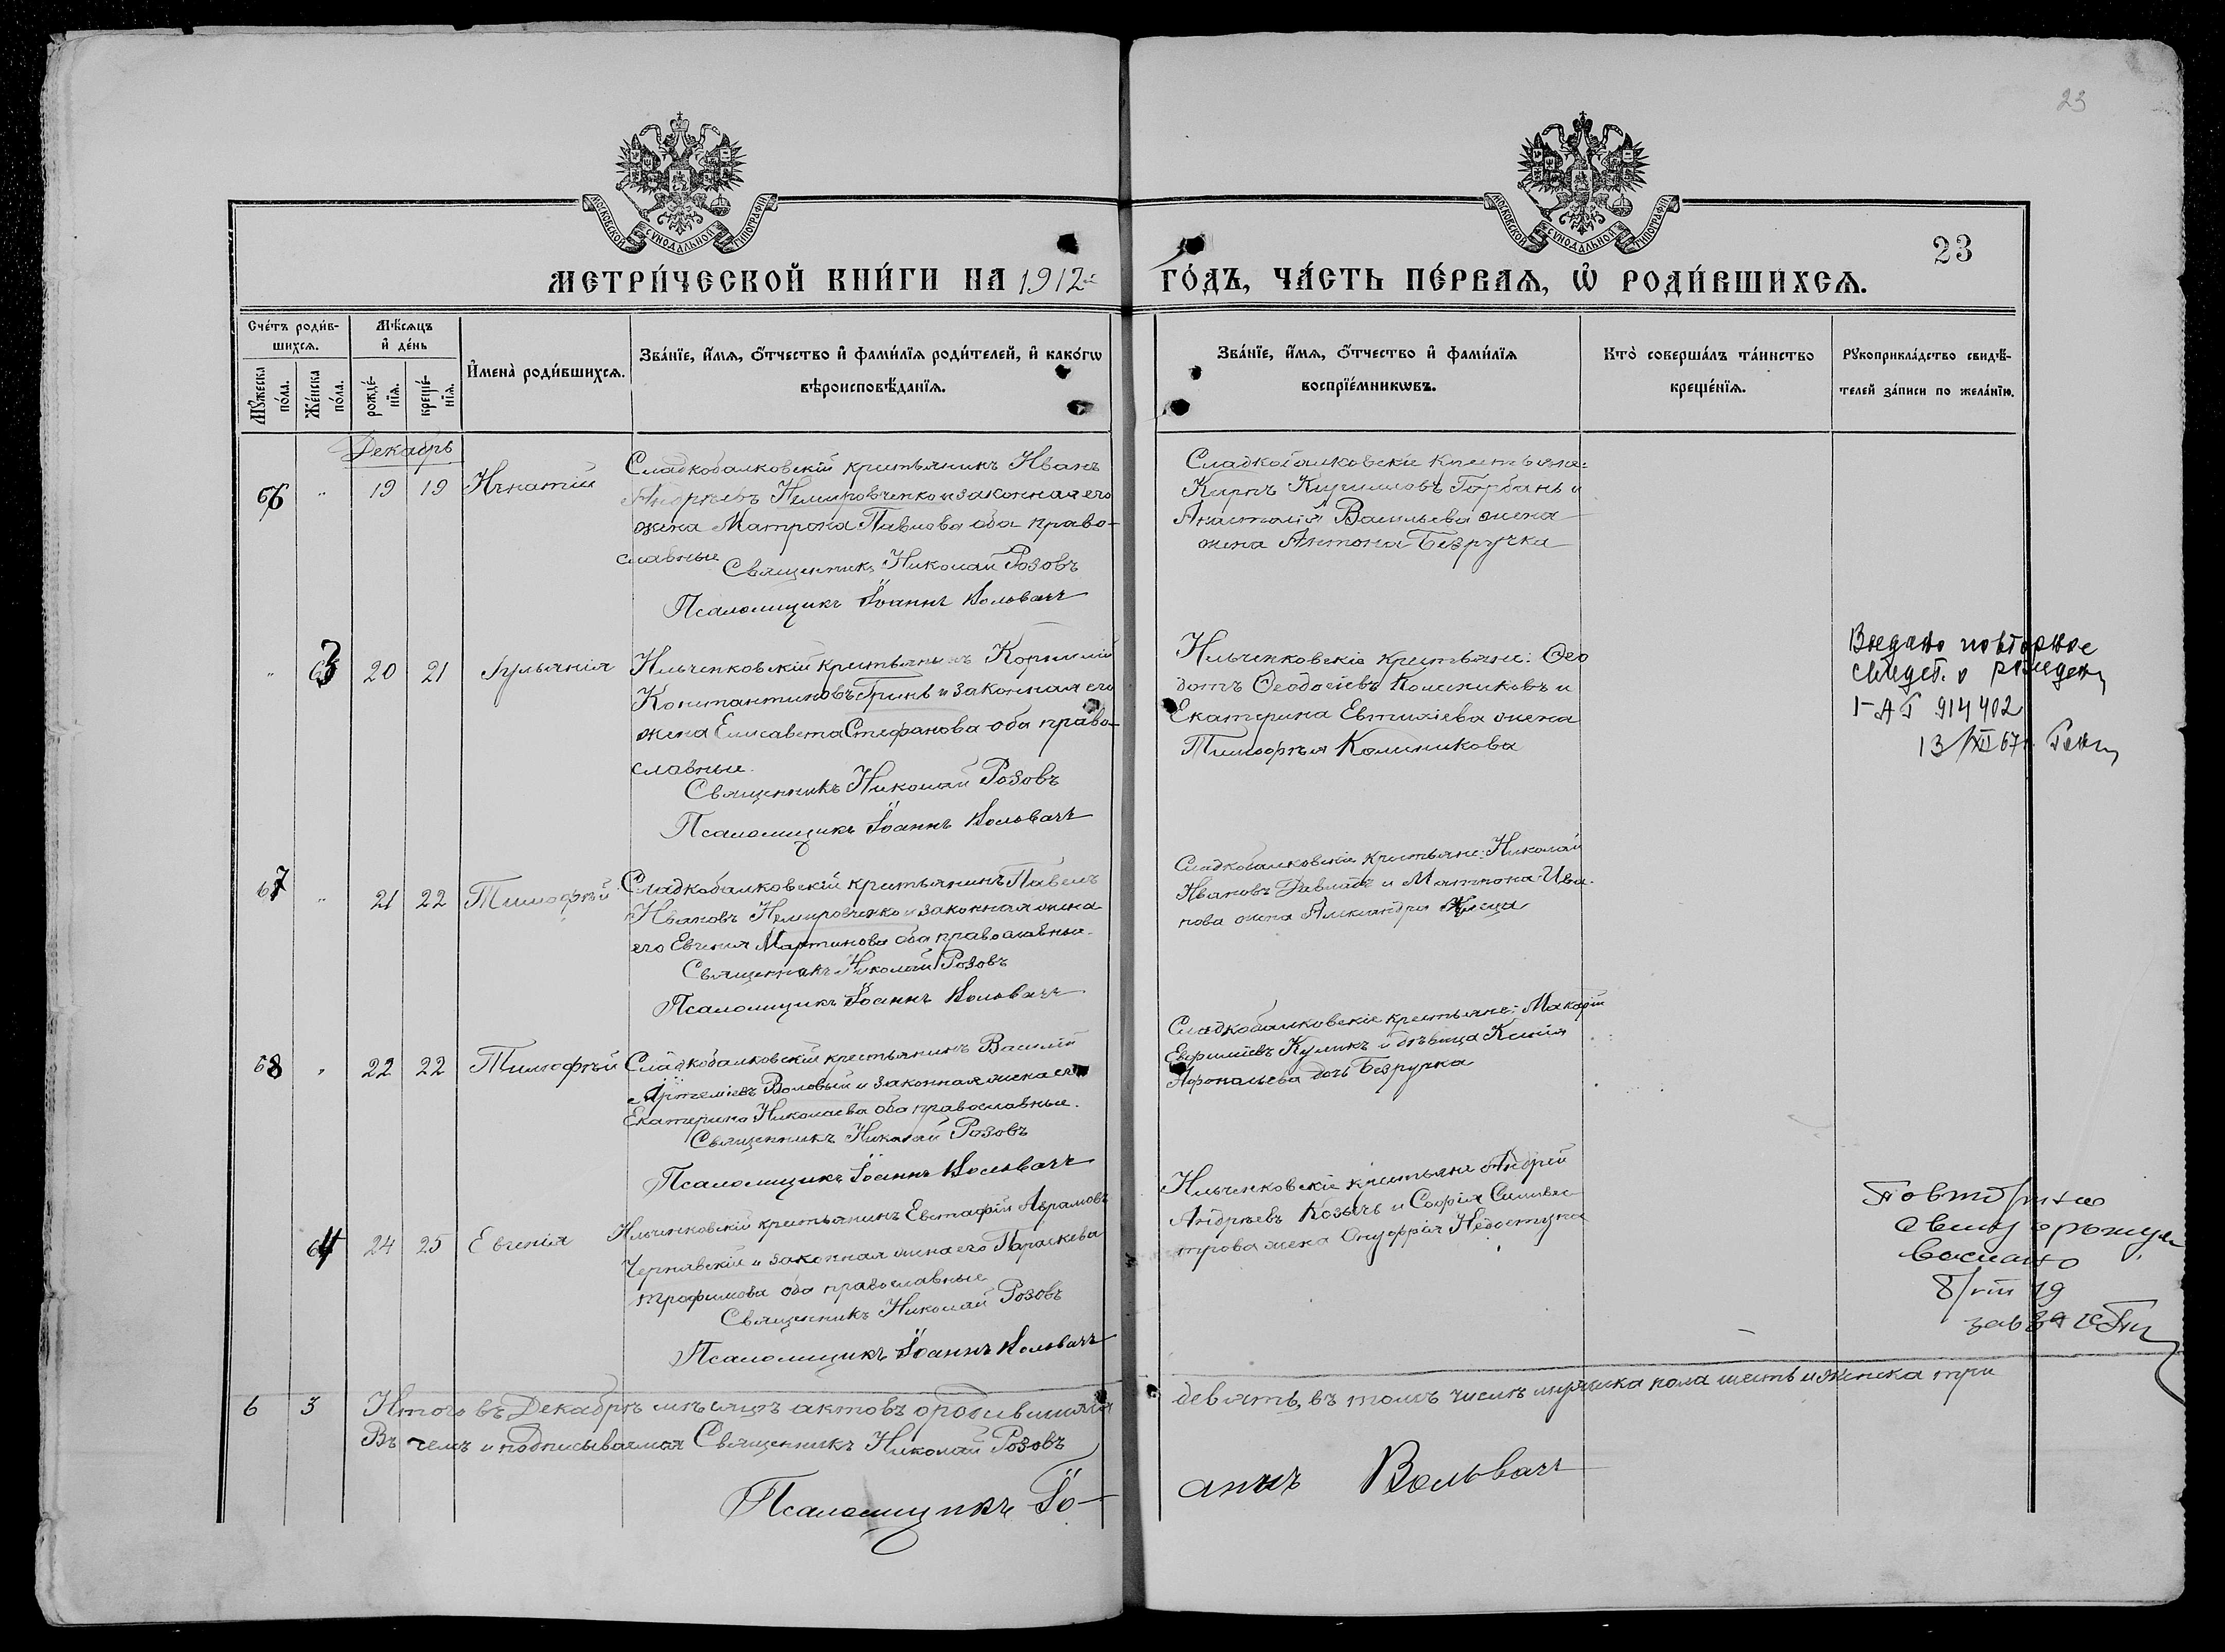 23
МОСКОВСКОЙ СУНОДАЛЬНОЙ ТИПОГРАФІИ
МОСКОВСКОЙ СУНОДАЛЬНОЙ ТИПОГРАФІИ
23
МЕТРИ́ЧЕСКОЙ КНИ́ГИ НА 1912й ГО́ДЪ, ЧА́СТЬ ПЕ́РВАѦ, Ѡ҆ РОДИ́ВШИХСѦ.
Сче́тъ роди́в-
шихсѧ.
Мꙋжеска по́ла.
Же́нска по́ла.
Мѣ́сѧцъ
и҆ де́нь
рожде́-
нїѧ.
креще́-
нїѧ.
И҆мена̀ роди́вшихсѧ.
Зва́нїе, и҆́мѧ, ѻ҆́тчество и҆ фами́лїѧ роди́телей, и҆ како́гѡ
вѣроисповѣ́данїѧ.
Зва́нїе, и҆́мѧ, ѻ҆́тчество и҆ фами́лїѧ
воспрїе́мникѡвъ.
Кто̀ соверша́лъ та́инство
креще́нїѧ.
Рꙋкоприкла́дство свидѣ́-
телей за́писи по жела́нїю.
Декабрь
66 " 19 19 Игнатій
Сладкобалковскій крестьянинъ Иванъ
Андреевъ Немировченко и законная его
жена Матрона Павлова оба право-
славные
Священникъ Николай Розовъ
Псаломщикъ Іоаннъ Вольвачъ
Сладкобалковскіе крестьяне:
Карпъ Кирилловъ Горбань и
Анастасія Васильева жена
жена Антона Безручка
" 63 20 21 Іуліанія
Ильченковскій крестьянинъ Корнилій
Константиновъ Гринь и законная его
жена Елисавета Стефанова оба право-
славные.
Священникъ Николай Розовъ
Псаломщикъ Іоаннъ Вольвачъ
Ильченковскіе крестьяне: Ѳео
дотъ Ѳеодосіевъ Колесниковъ и
Екатерина Евтихіева жена
Тимоѳея Колесникова
Выдано повторное
свидет. о рожден
914402
13/XII 67г.
67 " 21 22 Тимофѣй
Сладкобалковскій крестьянинъ Павелъ
Ивановъ Немировченко и законная жена
его Евгенія Мартинова оба православные.
Священникъ Николай Розовъ
Псаломщикъ Іоаннъ Вольвачъ
Сладкобалковскіе крестьяне: Николай
Ивановъ и Матрона Ива-
нова жена Александра
68 " 22 22 Тимофѣй
Сладкобалковскій крестьянинъ Василій
Артеміевъ Воловый и законная жена его
Екатерина Николаева оба православные.
Священникъ Николай Розовъ
Псаломщикъ Іоаннъ Вольвачъ
Сладкобалковскіе крестьяне: Макарій
Евфиміевъ Куликъ и дѣвица Ксенія
Афонасьева дочь Безручка
64 24 25 Евгенія
Ильченковскій крестьянинъ Евстафій Аврамовъ
Чернявскій и законная жена его Параскева
Трофимова оба православные
Священникъ Николай Розовъ
Псаломщикъ Іоаннъ Вольвачъ
Ильченковскіе крестьяне Андрей
Андреевъ Козычъ и Софія Сильвес
трова жена Онуфрія Недоступа
Повторно
свид о рожден
8/VIII 19
6 3 Итого въ Декабрѣ мѣсяцѣ актовъ о родившихся девять, въ томъ числѣ мужеска пола шесть и женска три
Въ чемъ и подписываемся Священникъ Николай Розовъ
Псаломщикъ Іо-аннъ Вольвачъ